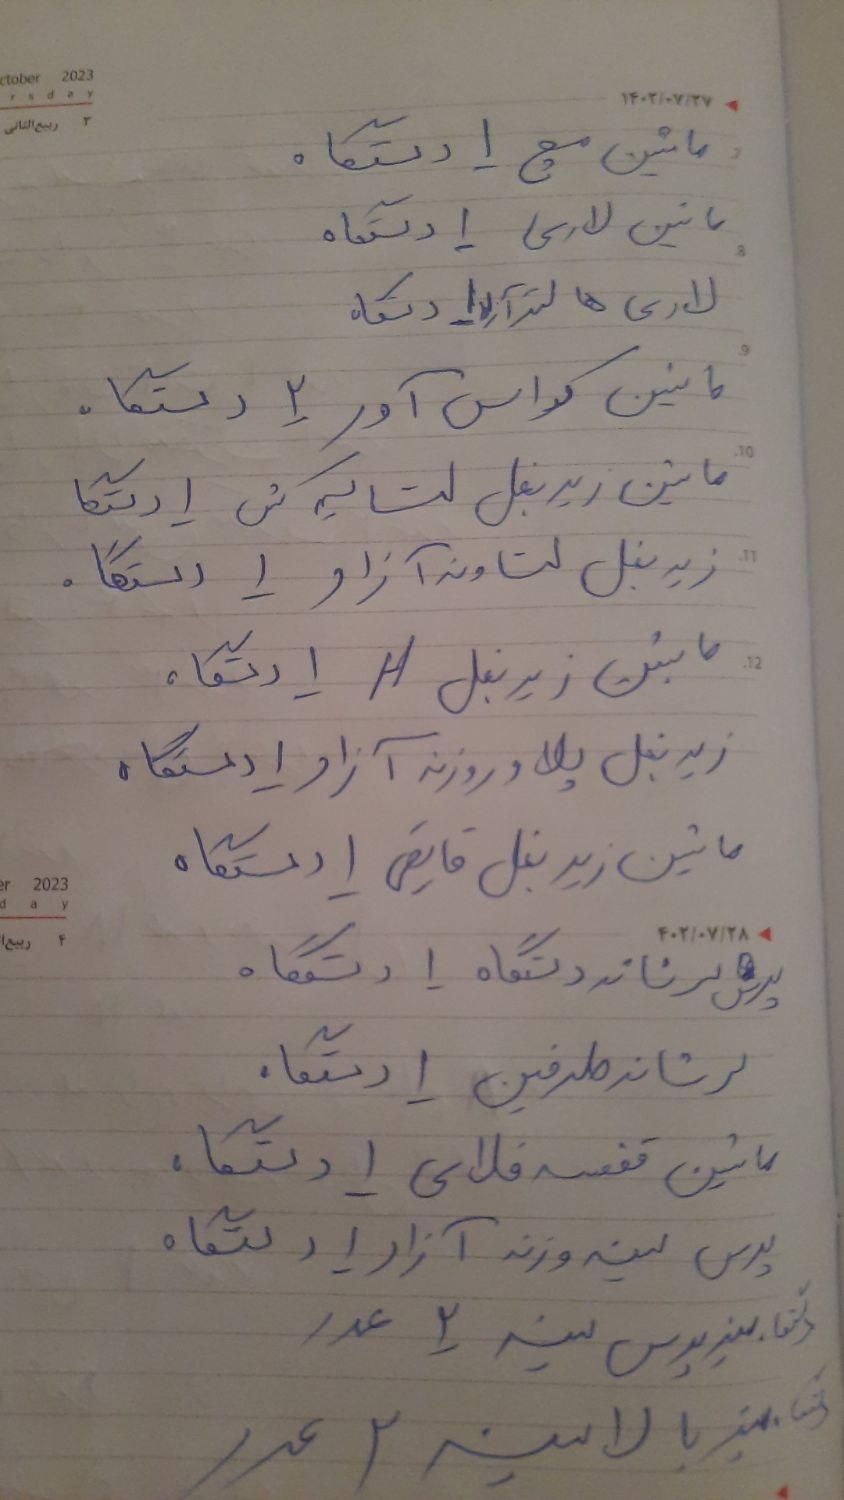 ctober 2023
r s d a y
۳ ربیع‌الثانی
۱۴۰۲/۰۷/۲۷
ماشین مچ ۱ دستگاه
8
ماشین لاری ۱ دستگاه
لاری ها لتر آزاد ۱ دستگاه
9.
ماشین کواس آور ۲ دستگاه
10.
ماشین زیر بغل لت سیم کش ۱ دستگا
11.
زیر بغل لت وزنه آزاد ۱ دستگاه
12.
ماشین زیر بغل H ۱ دستگاه
زیر بغل پلا وروزنه آزاد ۱ دستگاه
ماشین زیر بغل قایقی ۱ دستگاه
er 2023
d a y
۴ ربیع‌ا
۴۰۲/۰۷/۲۸
پرس سرشانه دستگاه ۱ دستگاه
سرشانه طرفین ۱ دستگاه
ماشین قفسه فلای ۱ دستگاه
پرس سینه وزنه آزاد ۱ دستگاه
دستگاه میز پرس سینه ۲ عدد
دستگاه میز بالا سینه ۲ عدد